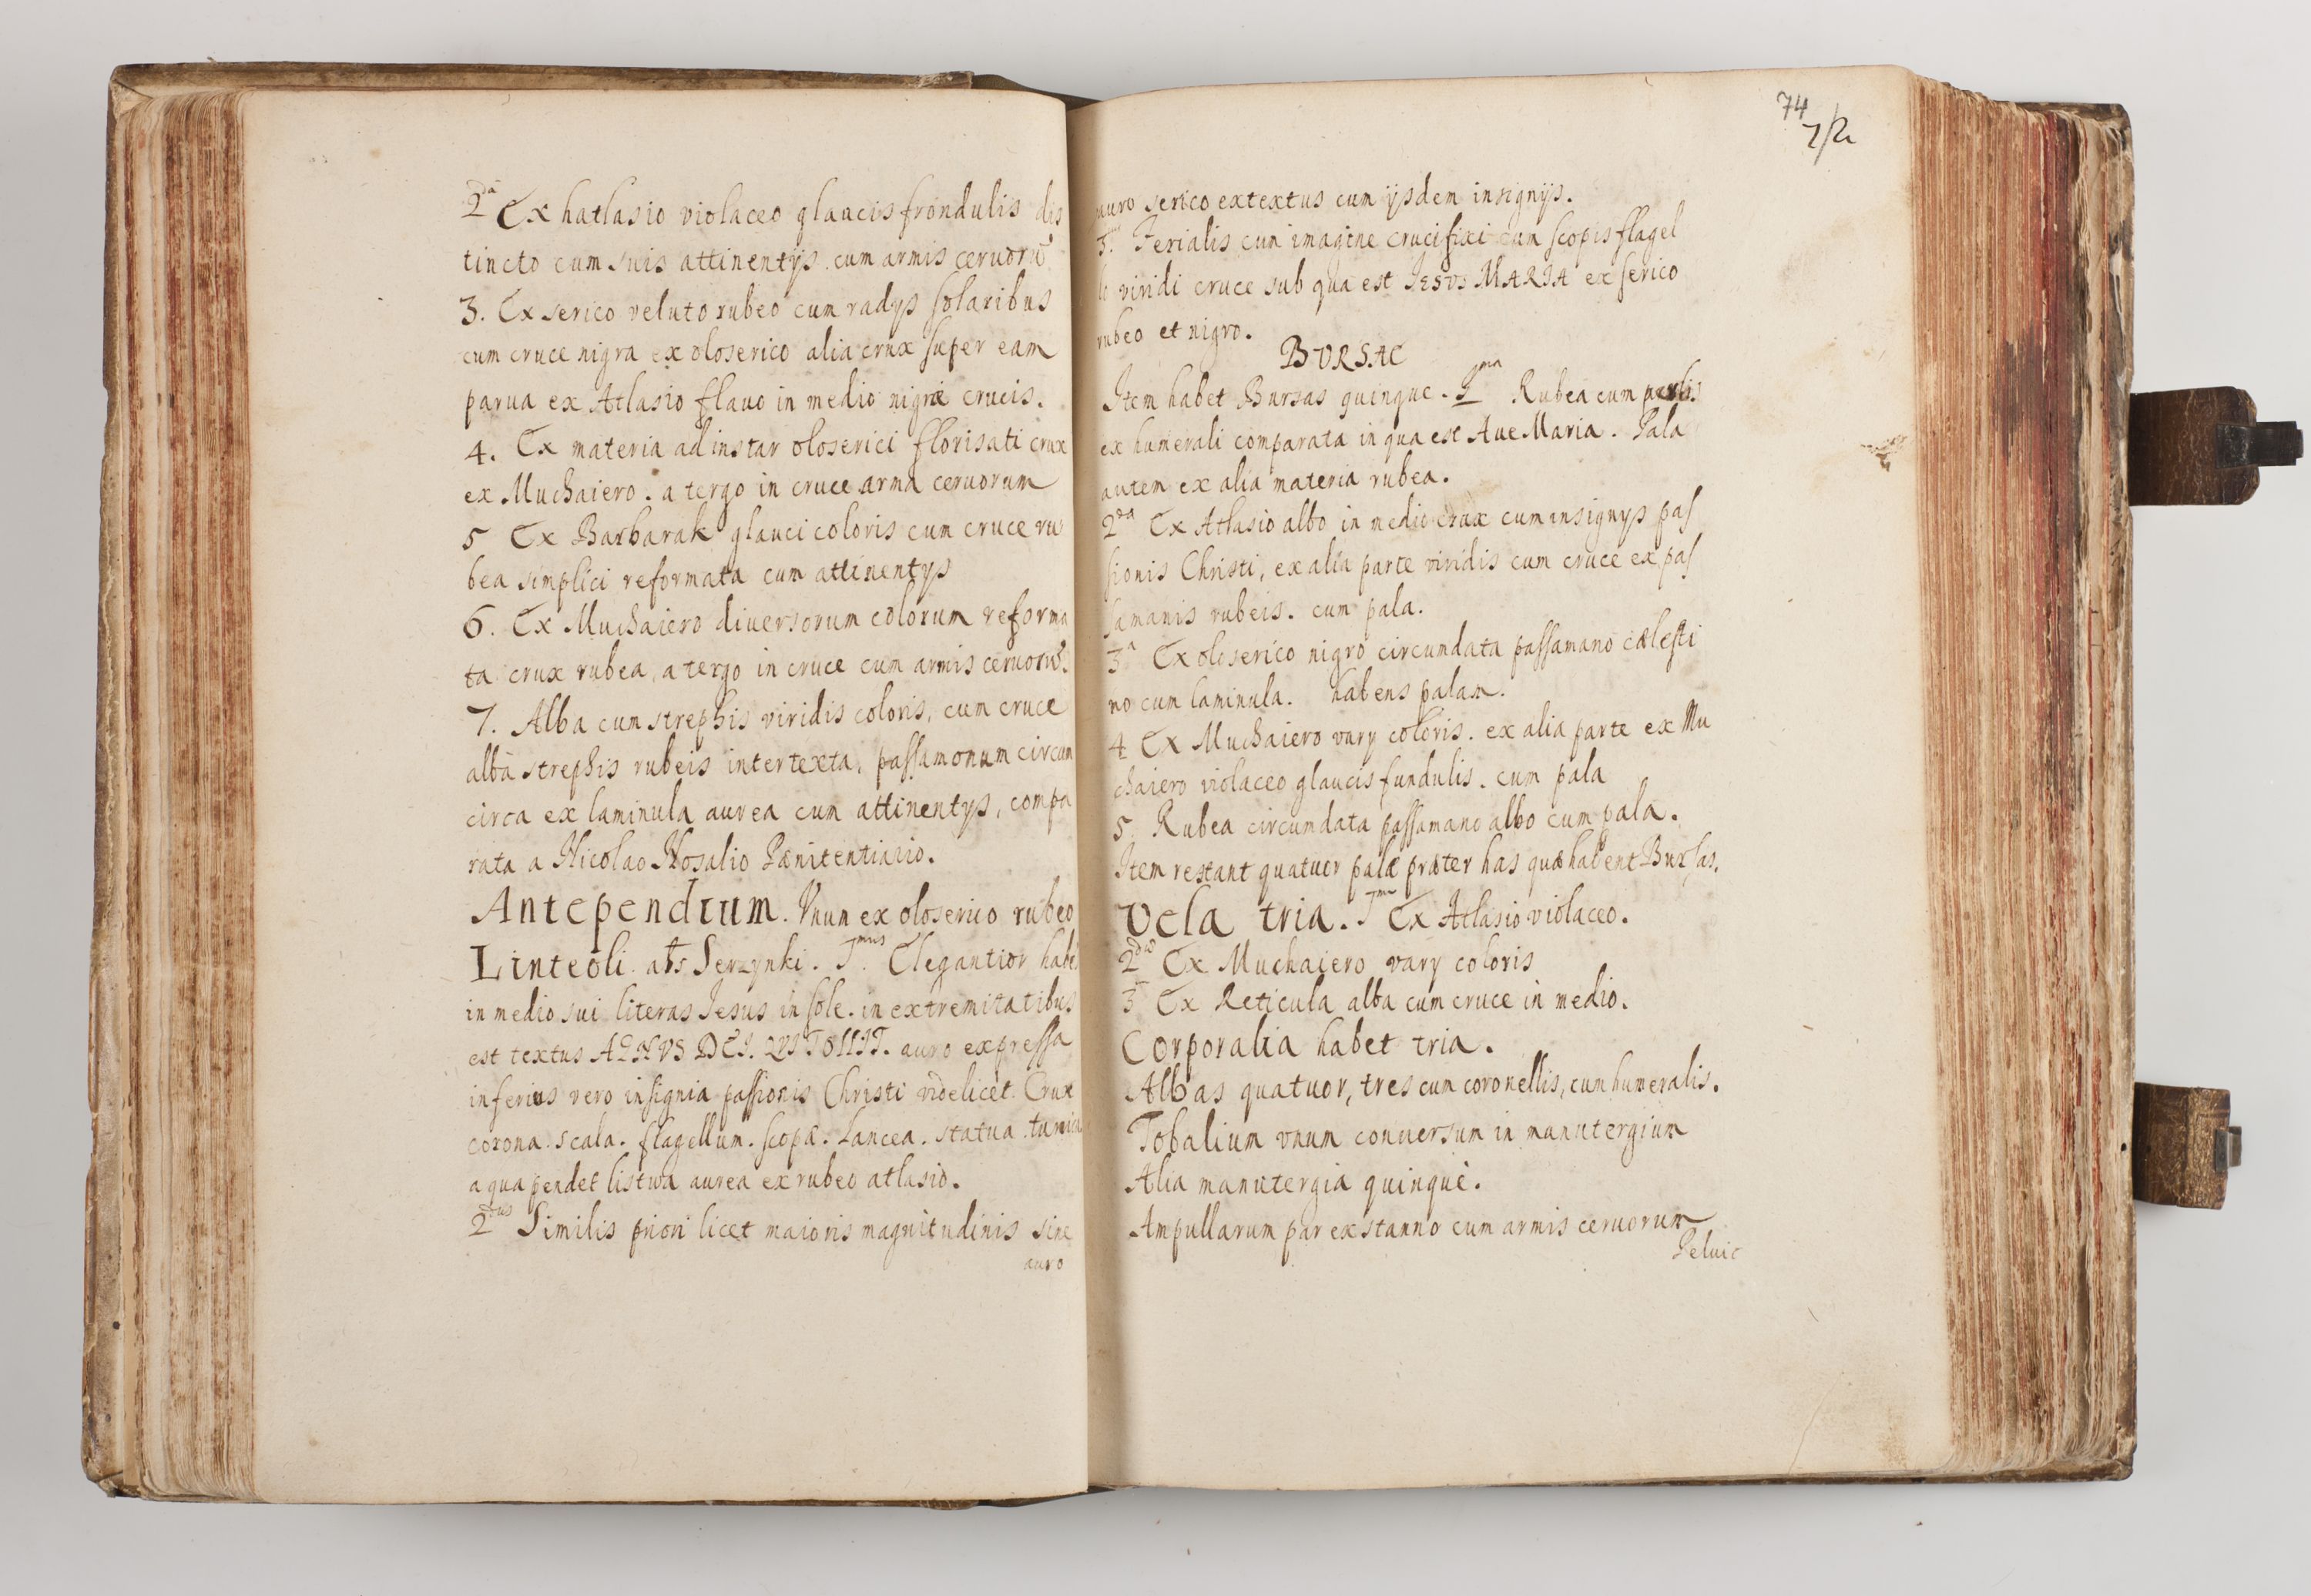 2da Ex hatlasio violaceo glaucis frondulis dis
tincto cum suis attinentijs cum armis ceruorũ
3. Ex serico veluto rubeo cum radijs solaribus
cum cruce nigra ex oloserico alia crux super eam
parua ex Atlasio flauo in medio nigræ crucis.
4. Ex materia ad instar oloserici florisati crux
ex Muchaiero. a tergo in cruce arma ceruorum
5 Ex Barbarak glauci coloris cum cruce ru
bea simplici reformata cum attinentijs
6. Ex Muchaiero diuersorum colorum reforma
ta crux rubea, a tergo in cruce cum armis ceruorũ.
7. Alba cum strephis viridis coloris, cum cruce
alba strephis rubeis intertexta, passamonum circum
circa ex laminula aurea cum attinentijs, compa
rata a Nicolao Nosalio Pænitentiario.
Antependium. Vnum ex oloserico rubeo
Linteoli als Serzynki. Imus Elegantior habẽs
in medio sui literas Jesus in sole. in extremitatibus
est textus AGNVS DEI. QVI TOLLIT. auro expressa
inferius vero insignia passionis Christi videlicet Crux
corona. scala. flagellum. scopæ. Lancea. statua.
a qua pendet listwa aurea ex rubeo atlasio.
2dus Similis priori licet maioris magnitudinis sine
auro
74
72
auro serico extextus cum ijsdem insignijs.
3us Ferialis cum imagine crucifixi cum scopis flagel
lo viridi cruce sub qua est JESVS MARIA ex serico
rubeo et nigro.
BVRSAE
Item habet Bursas quinque. Ima Rubea cum perlis
ex humerali comparata in qua est Aue Maria. Pala
autem ex alia materia rubea.
2da Ex Atlasio albo in medio crux cum insignijs pas
sionis Christi, ex alia parte viridis cum cruce ex pas
samanis rubeis. cum pala.
3a Ex oloserico nigro circumdata passamano cælesti
no cum laminula. habens palam.
4 Ex Muchaiero varij coloris. ex alia parte ex Mu
chaiero violaceo glaucis fundulis. cum pala
5. Rubea circumdata passamano albo cum pala.
Item restant quatuor palæ præter has quæ habent Bursas.
Vela tria. Imũ Ex Atlasio violaceo.
2dũ Ex Muchaiero varij coloris
3 Ex Reticula alba cum cruce in medio.
Corporalia habet tria.
Albas quatuor, tres cum coronellis, cum humeralis.
Tobalium vnum conuersum in manutergium
Alia manutergia quinque.
Ampullarum par ex stanno cum armis ceruorum
Peluic